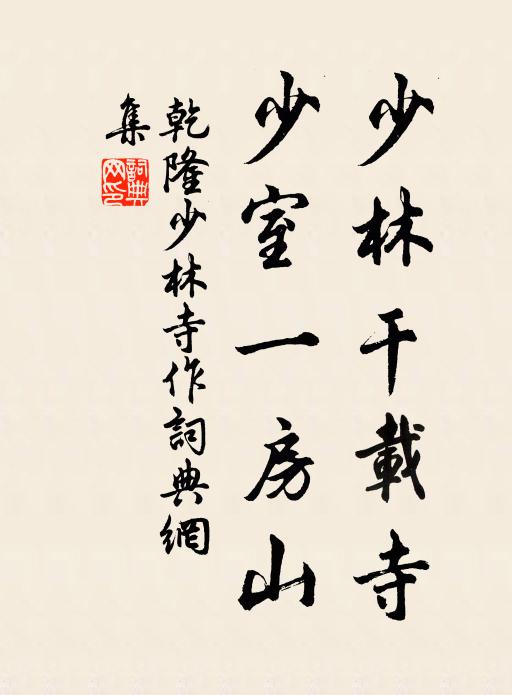 少林干載寺
少室一房山
乾隆少林寺作詞典網
集
詞典
网印